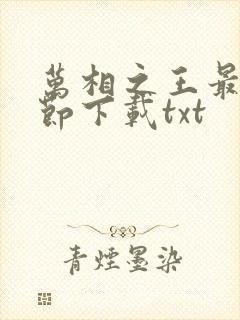 萬相之王最
節下載txt
青煙墨染